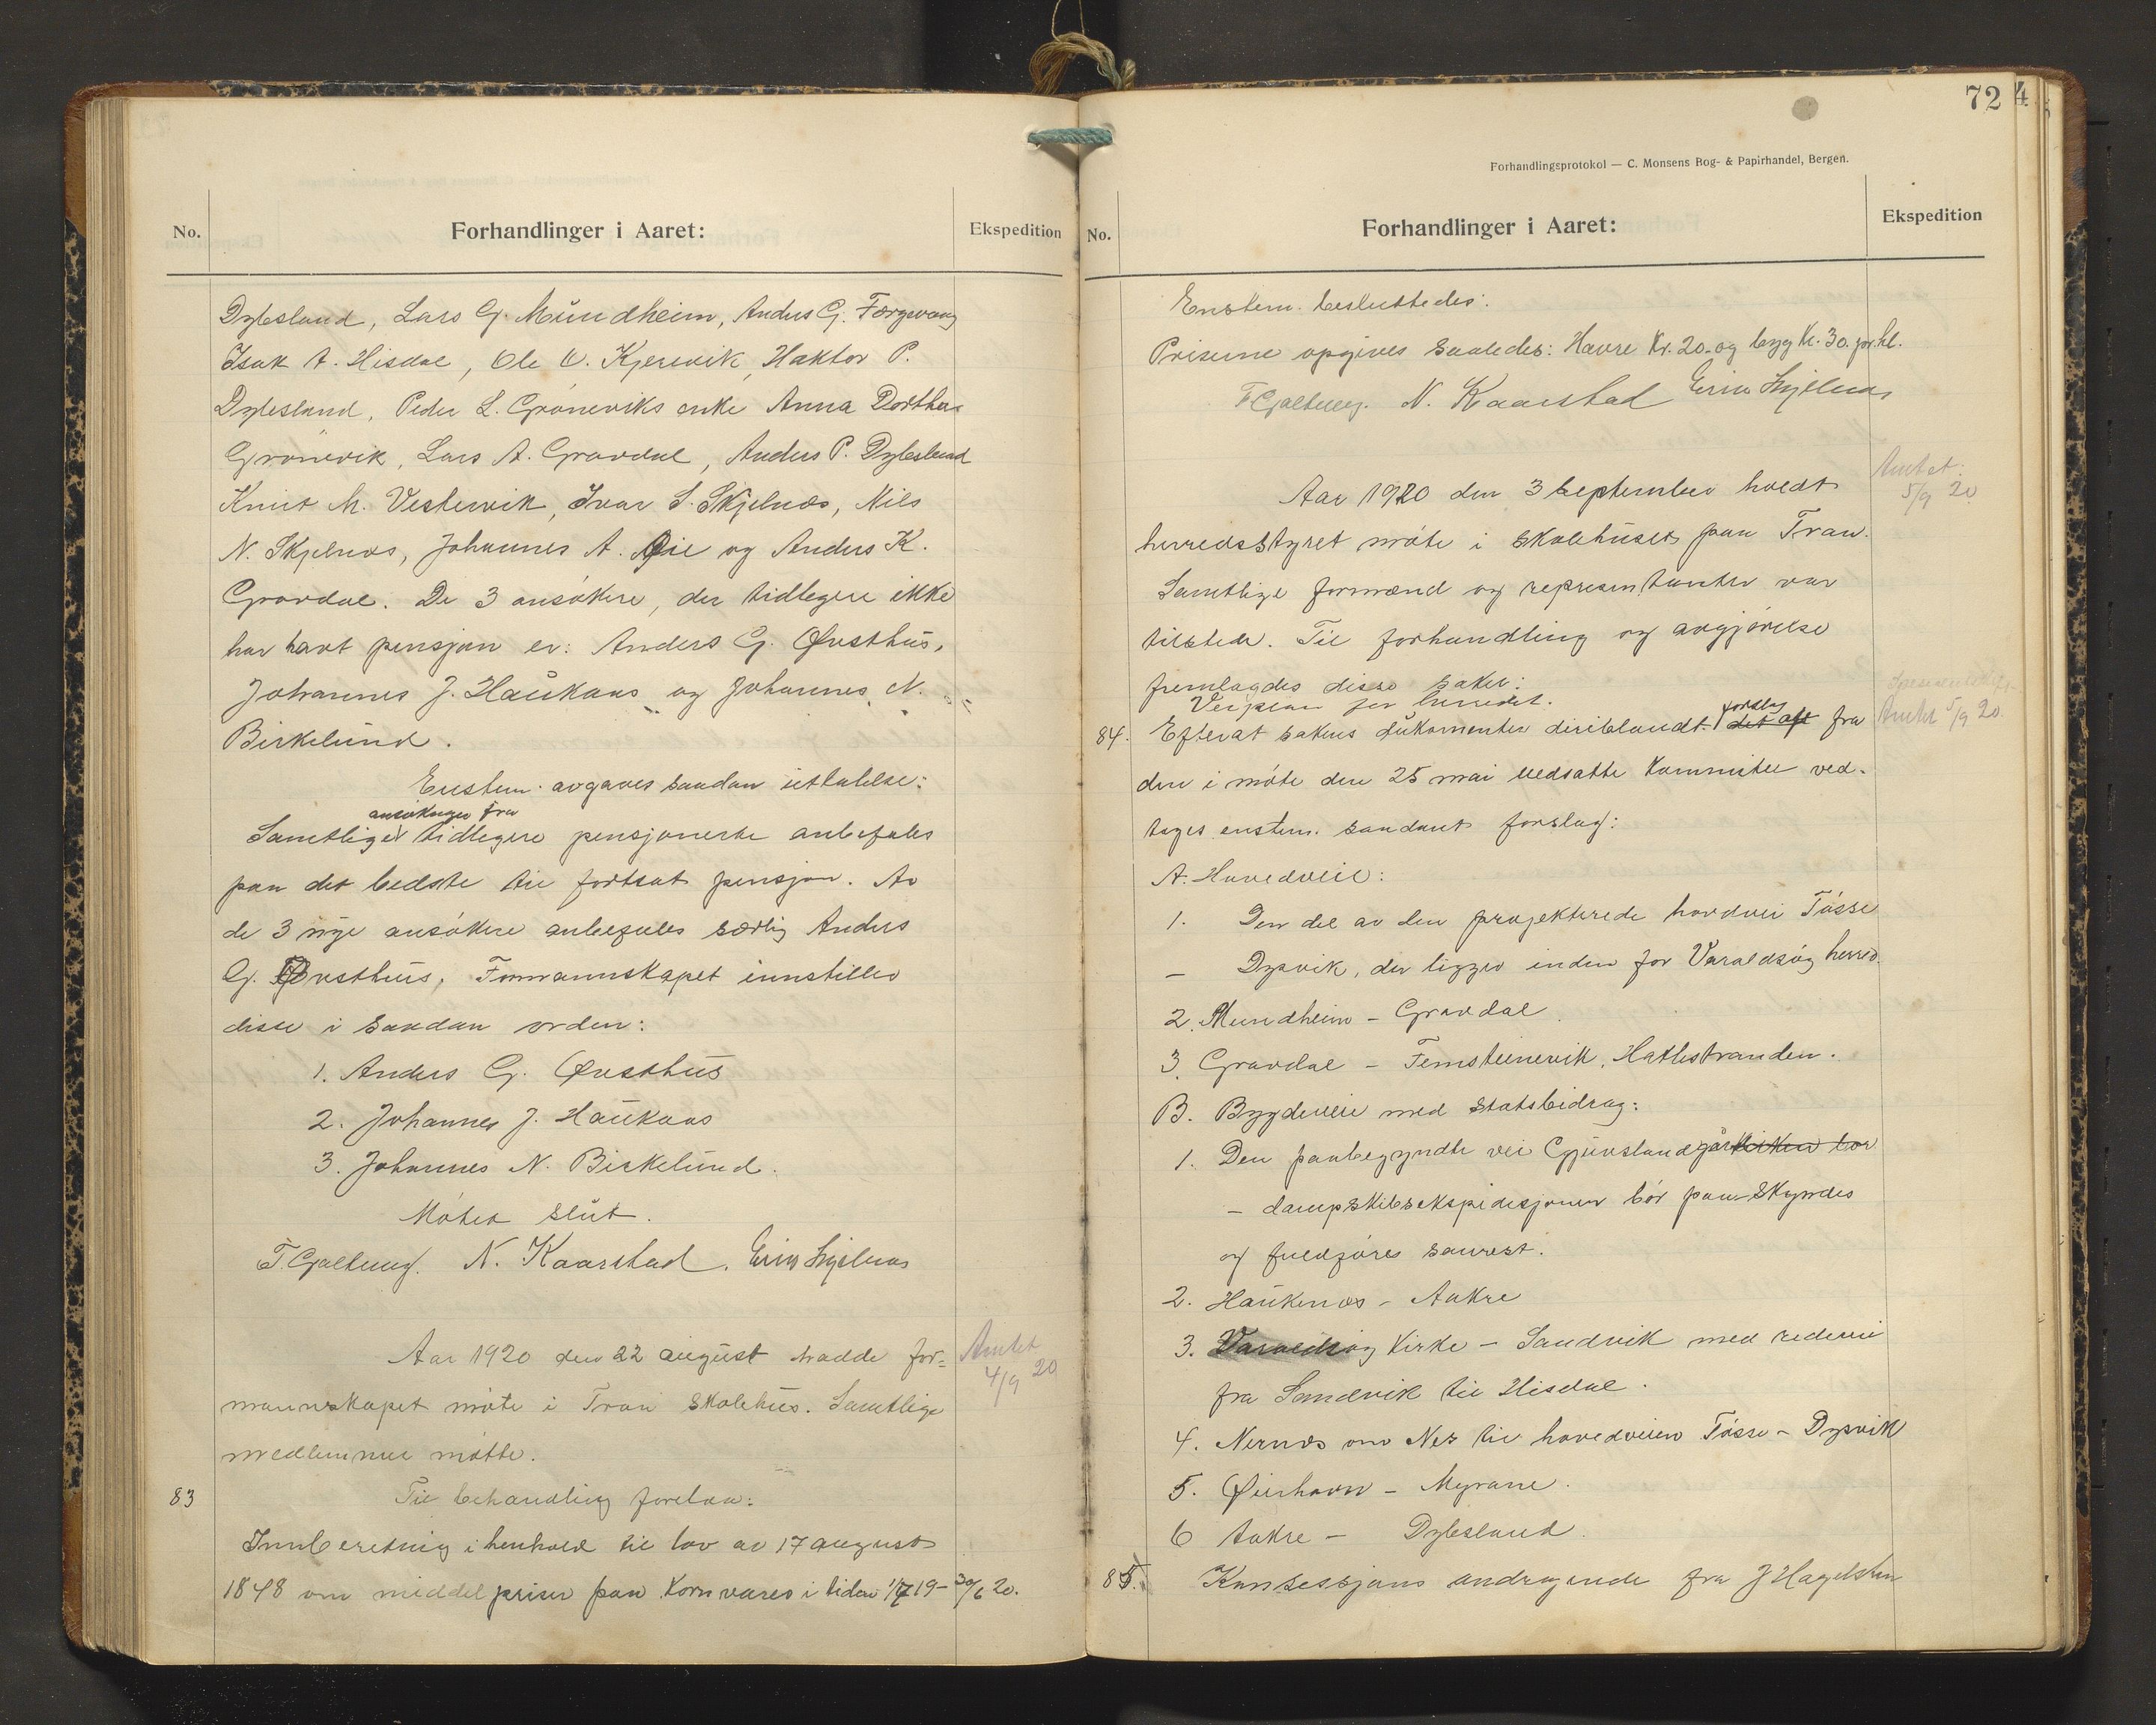 No.
Forhandlinger i Aaret:
Ekspedition
Dybsland, Lars G. Mundheim, Anders G. Færgevaag
Isak A. Hisdal, Ole O. Kjerevik, Haktor P.
Dybesland, Peder L. Grøneviks enke Anna Dorthea
Grønevik, Lars A. Gravdal, Anders P. Dybesland
Knut M. Vestervik, Ivar S. Skjelnæs, Nils
N. Skjelnæs, Johannes A. Øie og Anders K.
Gravdal. De 3 ansøkere, der tidlegere ikke
har havt pensjon er: Anders G. Øvsthus,
Johannes J. Haukaas og Johannes N.
Birkelund.
Enstem. avgaves saadan uttalelse:
ansøkinger fra
Samtlige tidlegere pensjonerte anbefales
paa det bedste til fortsat pensjon. Av
de 3 nye ansøkere anbefales særlig Anders
G. Øvsthus, Formannskapet innstiller
disse i saadan orden:
1. Anders G. Øvsthus
2. Johannes J. Haukaas
3. Johannes N. Birkelund.
Møtet slut.
T. Gjeltung. N. Kaarstad. Erik Skjelnæs
Aar 1920 den 22 august hadde for=
Amtet
4/9 20
mannskapet møte i Tran skolehus. Samtlige
medlemmer møtte.
83
Til behandling forelaa:
Innberetning i henhold til lov av 17 august
1848 om middelpriser paa kornvarer i tiden 1/7 19 - 30/6 20.
72
4
Forhandlingsprotokol — C. Monsens Bog- & Papirhandel, Bergen.
No.
Forhandlinger i Aaret:
Ekspedition
Enstem. besluttedes:
Priserne opgives saaledes: Havre Kr. 20.- og byg Kr. 30. pr. hl.
T. Gjeltung. N. Kaarstad Erik Skjelnæs
Amtet.
5/9 20
Aar 1920 den 3 september holdt
herredsstyret møte i skolehuset paa Tran.
Samtlige formænd og representanter var
tilstede. Til forhandling og avgjørelse
fremlagdes disse saker:
Veiplan for herredet.
Amtet 5/9 20.
84. Efterat sakens dokumenter deriblandt forslag det af fra
den i møte den 25 mai nedsatte kommitee ved-
toges enstem. saadant forslag:
A. Hovedveie:
1. Den del av den projekterede hovdvei Tøsse
- Dysvik, der ligger inden for Varaldsøy herred.
2. Mundheim - Gravdal.
3. Gravdal - Femsteinevik. Hatlestranden.
B. Bygdeveie med statsbidrag:
1. Den paabegyndte vei Gjuvslandgår kirken bør
- dampskibsekspedisjonen bør paaskyndes
og fuldføres snarest.
2. Haukenæs - Aakre
3. Varaldsøy Kirke - Sandvik med redevei
fra Sandvik til Hisdal.
4. Nernæs om Nes til hovedveien Tøsse - Dysvik
5. Øierhavn - Myrane.
6 Aakre - Dybesland.
85. Konsesjons andragende fra J Hagelsten